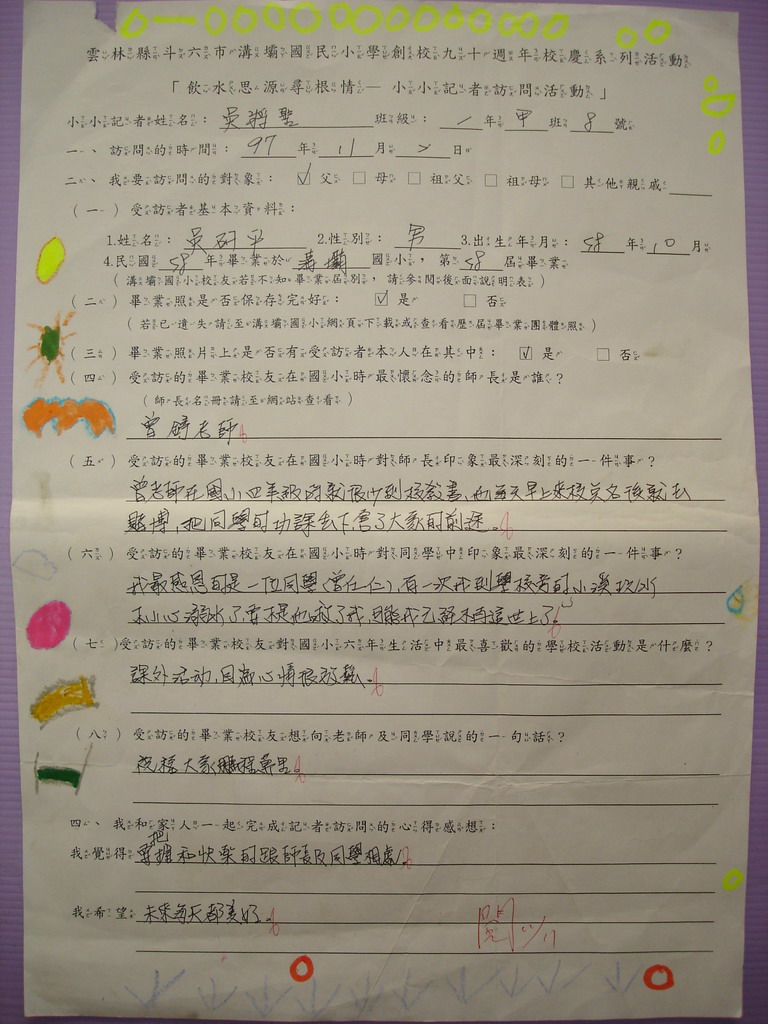 雲林縣斗六市溝壩國民小學創校九十週年校慶系列活動
「飲水思源尋根情—小小記者訪問活動」
小小記者姓名：吳 聖 班級：一年甲班8號
一、訪問的時間：97年11月2日
二、我要訪問的對象：☑父 □母 □祖父 □祖母 □其他親戚
（一）受訪者基本資料：
1.姓名：吳研平 2.性別：男 3.出生年月：58年10月
4.民國58年畢業於溝壩國小，第58屆畢業
（溝壩國小校友若不知畢業屆別，請參閱後面說明表）
（二）畢業照是否保存完好：☑是 □否
（若已遺失請至溝壩國小網頁下載或查看歷屆畢業團體照）
（三）畢業照片上是否有受訪者本人在其中：☑是 □否
（四）受訪的畢業校友在國小時最懷念的師長是誰？
（師長名冊請至網站查看）
曾 老師
（五）受訪的畢業校友在國小時對師長印象最深刻的一件事？
曾老師在國小四年級時就很少到校教書，他每天早上來校點名後就去
賭博，把同學的功課丟下害了大家的前途。
（六）受訪的畢業校友在國小時對同學中印象最深刻的一件事？
我最感恩的是一位同學（曾仁仁），有一次我到學校旁的小溪玩水
不小心溺水了，要不是他救了我，可能我已經不再這世上了。
（七）受訪的畢業校友對國小六年生活中最喜歡的學校活動是什麼？
課外活動，因為心情很放鬆。
（八）受訪的畢業校友想向老師及同學說的一句話？
祝福大家鵬程萬里。
四、我和家人一起完成記者訪問的心得感想：
我覺得要把握和快樂的跟師長及同學相處。
我希望未來每天都美好。
閱 11/11